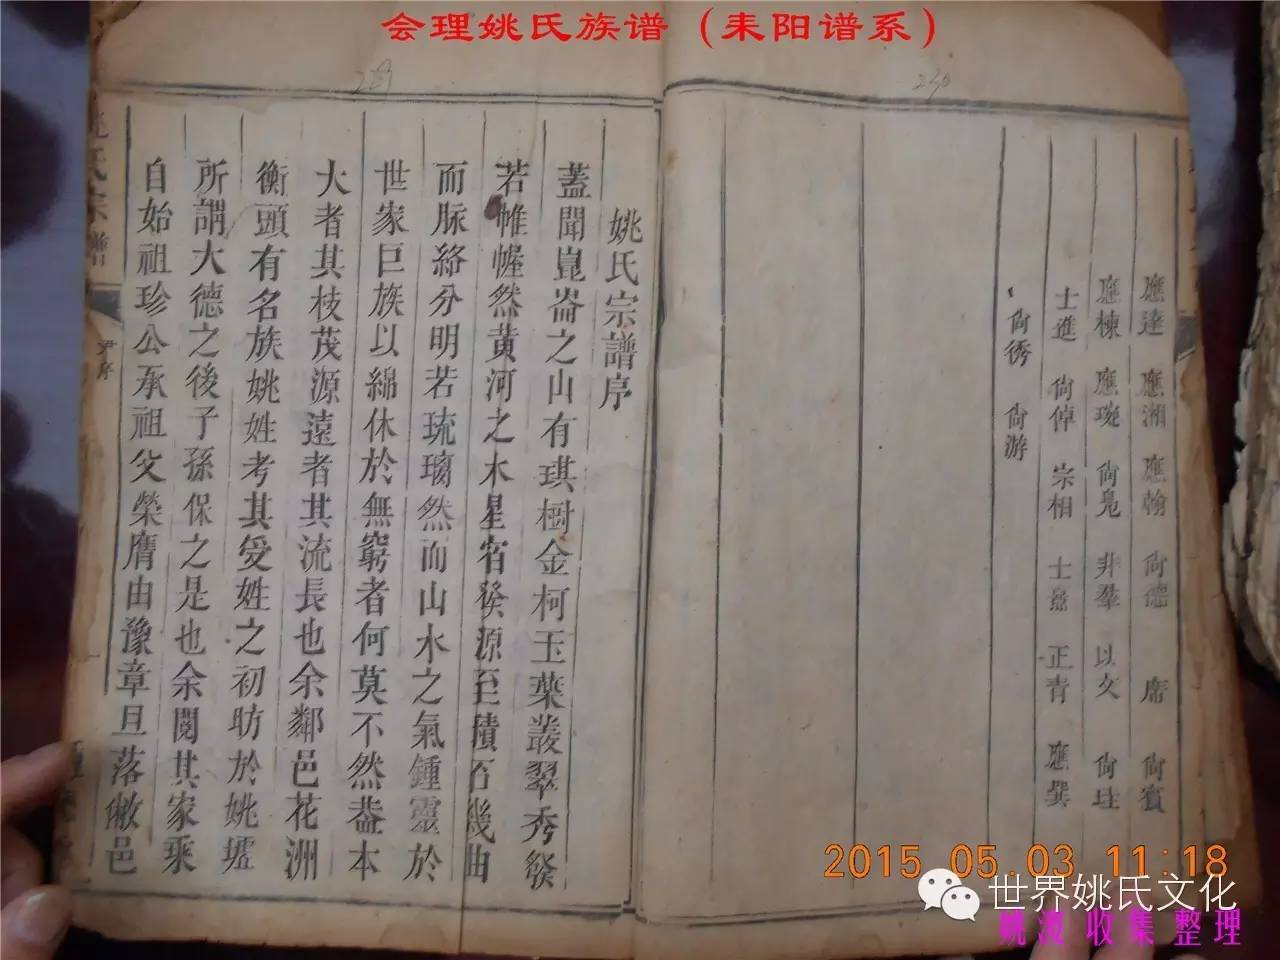 会理姚氏族谱（耒阳谱系）
229
230
應達 應湘 應翰 尙德 席 尙賓
應棟 應琬 尙堯 非羣 以文 尙珪
士進 尙倬 宗相 士 正青 應巽
尙琇 尙游
姚氏宗譜序
蓋聞崑崙之山有琪樹金柯玉葉叢翠秀發
若帷幄然黄河之水星宿發源至積石幾曲
而脉絡分明若琉璃然而山水之氣鍾靈於
世家巨族以綿休於無窮者何莫不然葢本
大者其枝茂源遠者其流長也余鄰邑花洲
衡頭有名族姚姓考其受姓之初昉於姚墟
所謂大德之後子孫保之是也余閱其家乘
自始祖珍公承祖父榮膺由豫章旦落敝邑
姚氏宗譜
尹序
2015.05.03 11:18
世界姚氏文化
姚波 收集整理